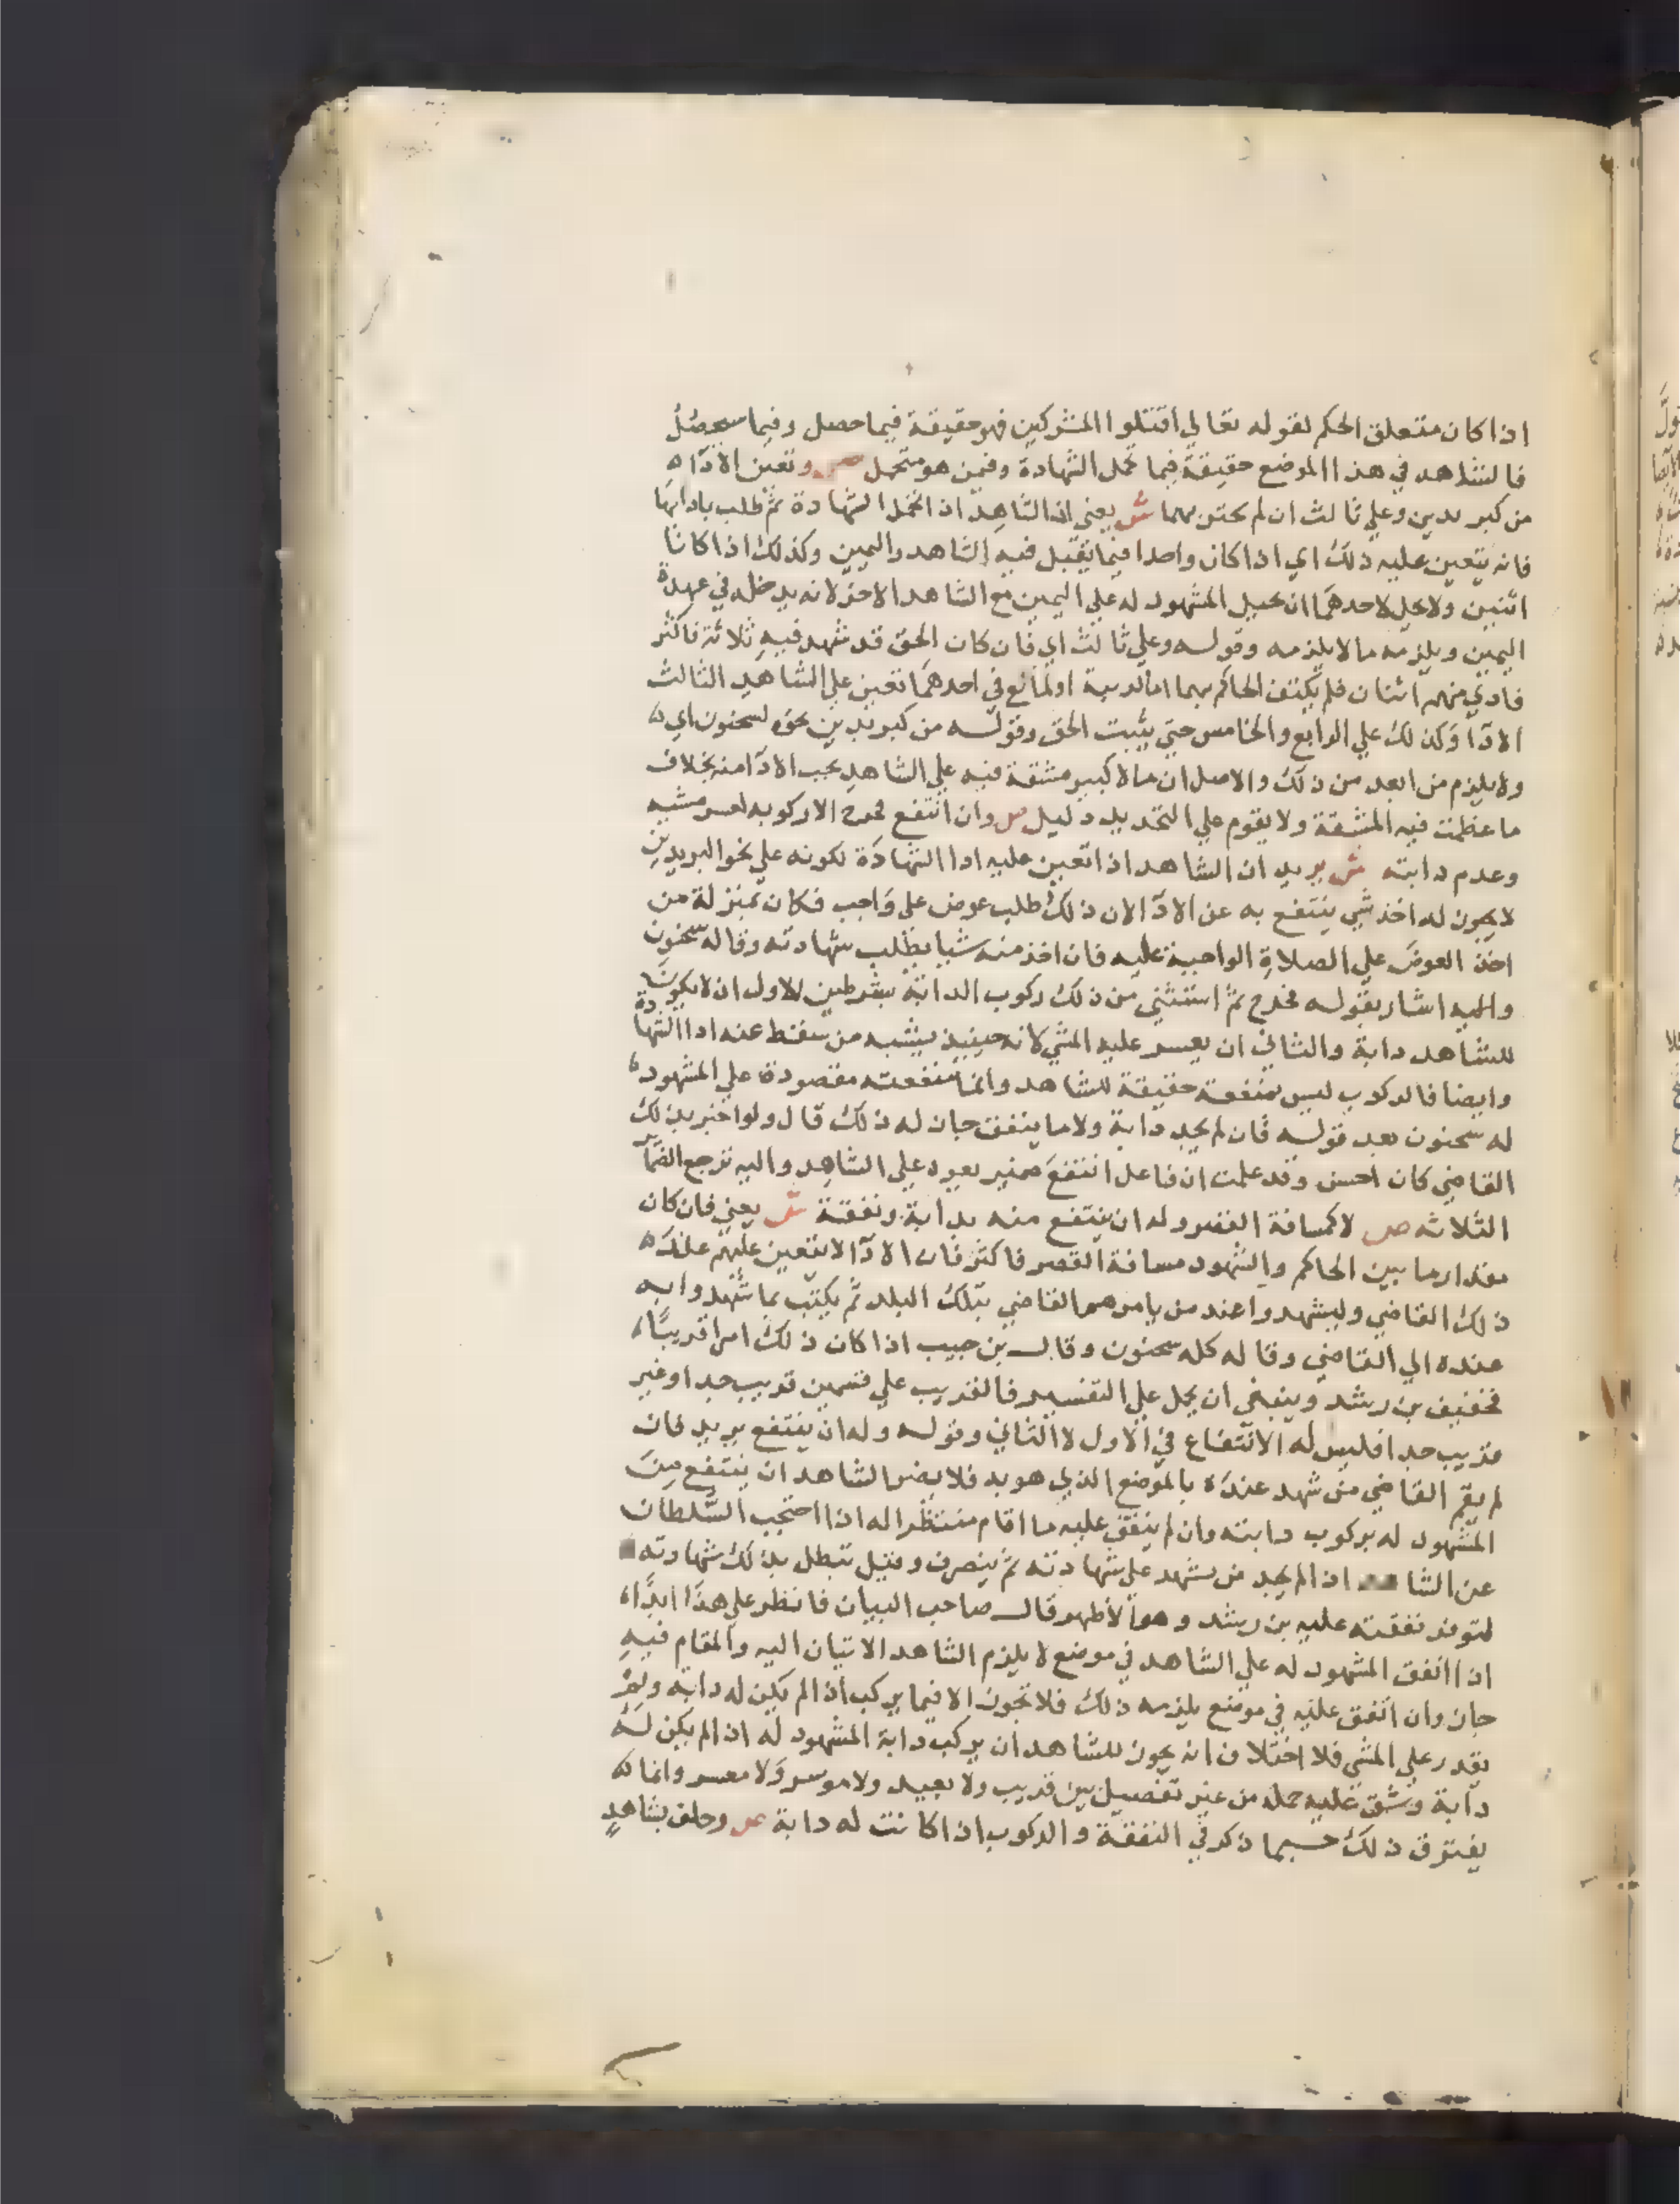 اذا كان متعلق الحكم لقوله تعالي اقتلوا المشركين فهو حقيقة فيما حصل وفيما سيحصل
فالشاهد في هذا الموضع حقيقة فيما تحمل الشهادة وفيمن هو متحمل ص وتعين الادآ
من كبريدين وعلي ثالث ان لم يجتز بهما ش يعني ان الشاهد اذا تحمل الشهادة ثم طلب بادائها
فانه يتعين عليه ذلك اي اذا كان واحدا فيما يقبل فيه الشاهد واليمين وكذلك اذا كانا
اثنين ولا يحل لاحدهما ان يحيل المشهود له علي اليمين مع الشاهد الاخر لانه يدخله في عهدة
اليمين ويلزمه ما لا يلزمه وقوله وعلي ثالث اي فان كان الحق قد شهد فيه ثلاثة فاكثر
فادي منهم اثنان فلم يكتف الحاكم بهما اما لريبة او لمانع في احدهما تعين علي الشاهد الثالث
الادآ وكذلك علي الرابع والخامس حتي يثبت الحق وقوله من كبريدين نحوه لسحنون اي
ولا يلزم من ابعد من ذلك والاصل ان ما لا كبير مشقة فيه علي الشاهد يجب الادآ منه بخلاف
ما عظمت فيه المشقة ولا يقوم علي التحديد دليل ص وان انتفع فجرح الا ركوبه لعسر مشيه
وعدم دابته ش يريد ان الشاهد اذا تعين عليه ادا الشهادة لكونه علي نحو البريدين
لا يجوز له اخذ شي ينتفع به عن الادآ لان ذلك طلب عوض علي واجب فكان بمنزلة من
اخذ العوض علي الصلاة الواجبة عليه فان اخذ منه شيا بطلب شهادته وقاله سحنون
واليه اشار بقوله فجرح ثم استثني من ذلك ركوب الدابة بشرطين الاول ان لا يكون
للشاهد دابة والثاني ان يعسر عليه المشي لانه حينيذ يشبه من سقط عنه ادا الشهادة
وايضا فالركوب ليس منفعة حقيقة للشاهد وانما منفعته مقصودة علي المشهود
له سحنون بعد قوله فان لم يجد دابة ولا ما ينفق جاز له ذلك قال ولو اخبر بذلك
القاضي كان احسن وقد علمت ان فاعل انتفع ضمير يعود علي الشاهد واليه ترجع الضمآير
الثلاثه ص لا كمسافة القصر وله ان ينتفع منه بدابة ونفقة ش يعني فان كان
مقدار ما بين الحاكم والشهود مسافة القصر فاكثر فان الادآ لا يتعين عليهم عند
ذلك القاضي وليشهدوا عند من يامرهم القاضي بتلك البلد ثم يكتب بما شهدوا به
عنده الي القاضي وقاله كله سحنون وقال بن حبيب اذا كان ذلك امرا قريبا
فخفيف بن رشد وينبغي ان يحمل علي التفسير فالقريب علي قسمين قريب جدا وغير
قريب جدا فليس له الانتفاع في الاول لا الثاني وقوله وله ان ينتفع يريد فان
لم يقم القاضي من شهد عنده بالموضع الذي هو به فلا يضر الشاهد ان ينتفع من
المشهود له بركوب دابته وان لم ينفق عليه ما اقام منتظرا له اذا احتجب السلطان
عن الشا اذا لم يجد من يشهد علي شهادته ثم ينصرف وقيل تبطل بذلك شهادته
لتوفر نفقته عليه بن رشد وهو الاظهر قال صاحب البيان فانظر علي هذا ابدا
اذا انفق المشهود له علي الشاهد في موضع لا يلزم الشاهد الاتيان اليه والمقام فيه
جاز وان انفق عليه في موضع يلزمه ذلك فلا تجوز الا فيما يركب اذا لم يكن له دابة ولم
يقدر علي المشي فلا اختلاف انه يجوز للشاهد ان يركب دابة المشهود له اذا لم يكن له
دابة وشق عليه حمله من غير تفصيل بين قريب ولا بعيد ولا موسر ولا معسر وانما
يفترق ذلك حسبما ذكر في النفقة والركوب اذا كانت له دابة ص وحلف بشاهد